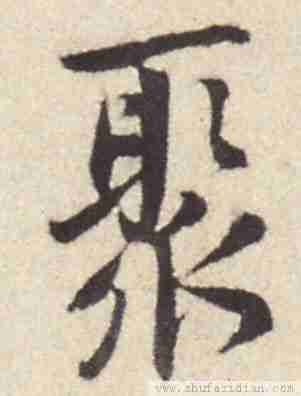 聚
www.shufaridian.com